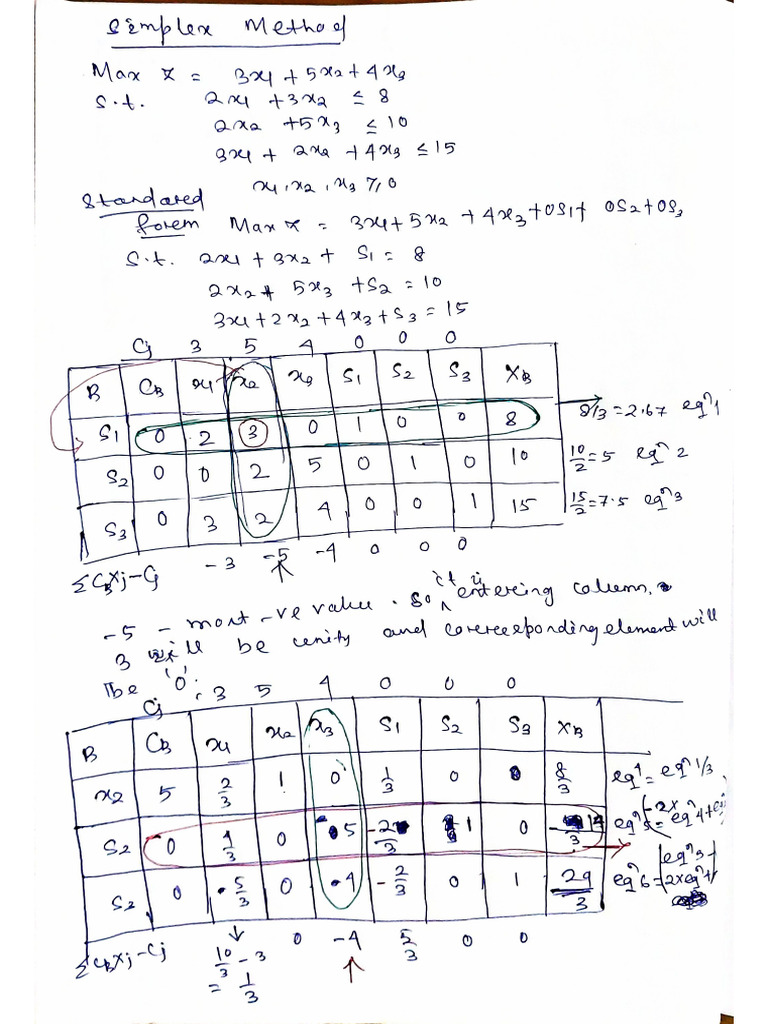 Simplex Method
Max Z = 3x1 + 5x2 + 4x3
S.t. 2x1 + 3x2 ≤ 8
2x2 + 5x3 ≤ 10
3x1 + 2x2 + 4x3 ≤ 15
x1, x2, x3 ≥ 0
Standared
forem Max Z = 3x1 + 5x2 + 4x3 + 0S1 + 0S2 + 0S3
S.t. 2x1 + 3x2 + S1 = 8
2x2 + 5x3 + S2 = 10
3x1 + 2x2 + 4x3 + S3 = 15
Cj 3 5 4 0 0 0
B CB x1 x2 x3 S1 S2 S3 XB
S1 0 2 3 0 1 0 0 8 8/3 = 2.67 eqn 1
S2 0 0 2 5 0 1 0 10 10/2 = 5 eqn 2
S3 0 3 2 4 0 0 1 15 15/2 = 7.5 eqn 3
ΣCBXj - Cj -3 -5 -4 0 0 0
-5 - most -ve value. So it is entering column.
3 will be unity and correcesponding element will
be '0'.
Cj 3 5 4 0 0 0
B CB x1 x2 x3 S1 S2 S3 XB
x2 5 2/3 1 0 1/3 0 0 8/3 eqn 4 = eqn 1/3
S2 0 4/3 0 5 -2/3 1 0 14/3 eqn 5 = -2x eqn 4 +
S2 0 5/3 0 4 -2/3 0 1 29/3 eqn 6 = eqn 3 - 2x eqn 4
ΣCBXj - Cj 10/3 - 3 0 -4 5/3 0 0
= 1/3